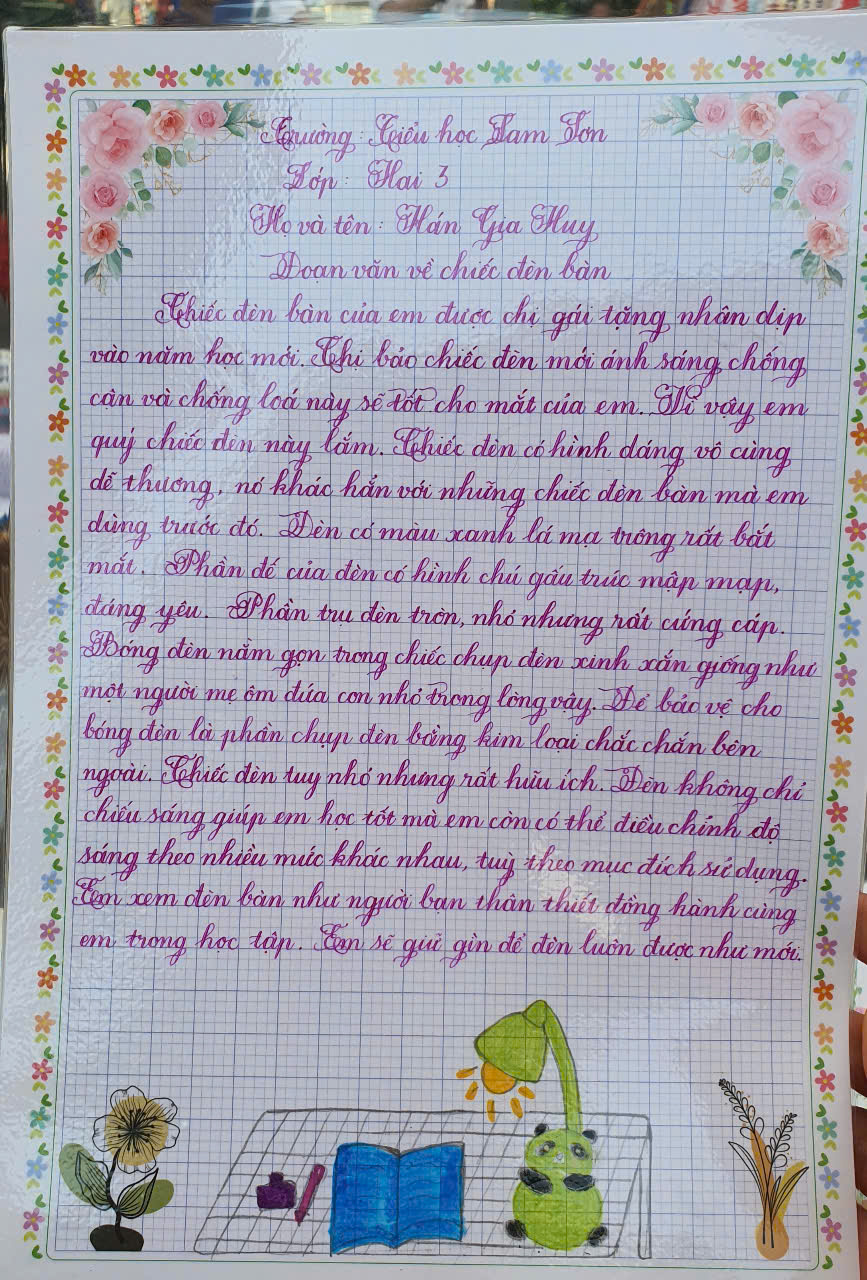 Trường: Tiểu học Tam Sơn
Lớp: Hai 3
Họ và tên: Hán Gia Huy
Đoạn văn về chiếc đèn bàn
Chiếc đèn bàn của em được chị gái tặng nhân dịp
vào năm học mới. Chị bảo chiếc đèn mới ánh sáng chống
cận và chống loá này sẽ tốt cho mắt của em. Vì vậy em
quý chiếc đèn này lắm. Chiếc đèn có hình dáng vô cùng
dễ thương, nó khác hẳn với những chiếc đèn bàn mà em
dùng trước đó. Đèn có màu xanh lá mạ trông rất bắt
mắt. Phần đế của đèn có hình chú gấu trúc mập mạp,
đáng yêu. Phần trụ đèn tròn, nhỏ nhưng rất cứng cáp.
Bóng đèn nằm gọn trong chiếc chụp đèn xinh xắn giống như
một người mẹ ôm đứa con nhỏ trong lòng vậy. Để bảo vệ cho
bóng đèn là phần chụp đèn bằng kim loại chắc chắn bên
ngoài. Chiếc đèn tuy nhỏ nhưng rất hữu ích. Đèn không chỉ
chiếu sáng giúp em học tốt mà em còn có thể điều chỉnh độ
sáng theo nhiều mức khác nhau, tuỳ theo mục đích sử dụng.
Em xem đèn bàn như người bạn thân thiết đồng hành cùng
em trong học tập. Em sẽ giữ gìn để đèn luôn được như mới.